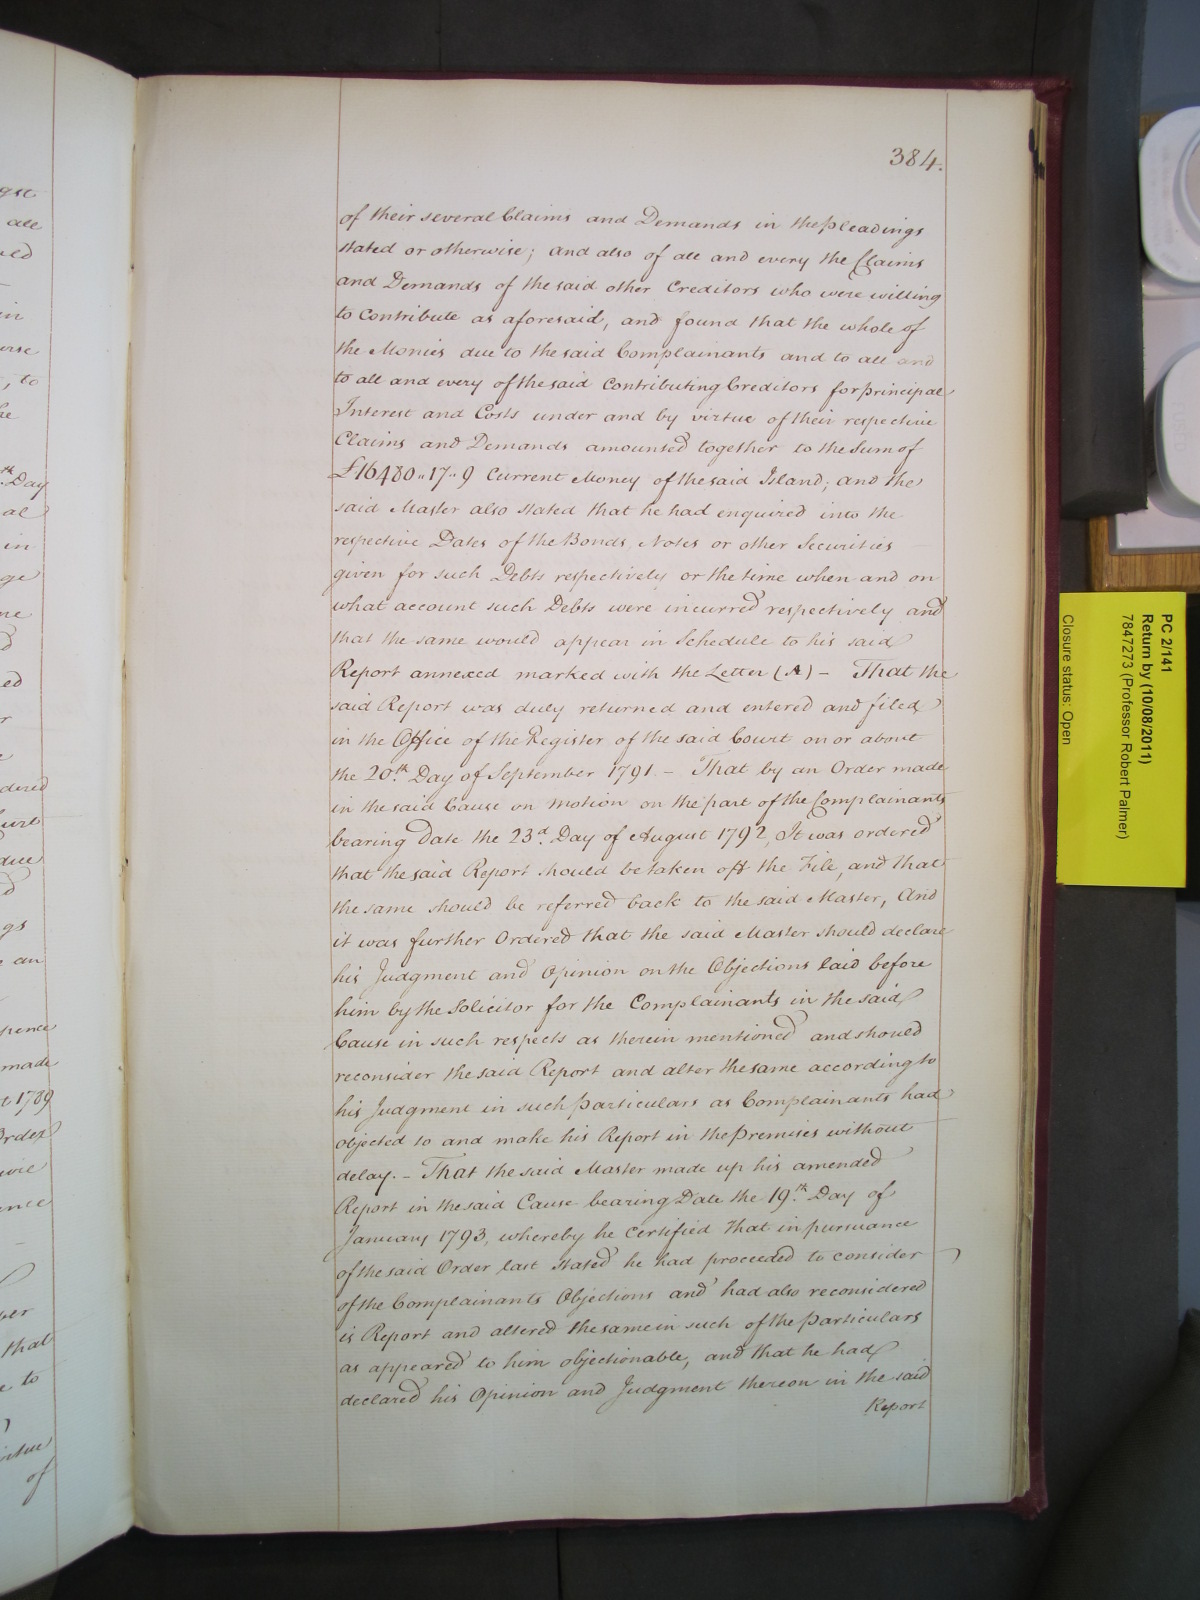 384.
of their several Claims and Demands in the pleadings
stated or otherwise; and also of all and every the Claims
and Demands of the said other Creditors who were willing
to Contribute as aforesaid, and found that the whole of
the Monies due to the said Complainants and to all and
to all and every of the said Contributing Creditors for principal
Interest and Costs under and by virtue of their respective
Claims and Demands amounted together to the Sum of
£16480..17..9 Current Money of the said Island; and the
said Master also stated that he had enquired into the
respective Dates of the Bonds, Notes or other Securities
given for such Debts respectively or the time when and on
what account such Debts were incurred respectively and
that the same would appear in Schedule to his said
Report annexed marked with the Letter (A) - That the
said Report was duly returned and entered and filed
in the Office of the Register of the said Court on or about
the 20th. Day of September 1791 - That by an Order made
in the said Cause on motion on the part of the Complainants
bearing date the 23d. Day of August 1792, It was ordered
that the said Report should be taken off the File, and that
the same should be referred back to the said Master, And
it was further Ordered that the said Master should declare
his Judgment and Opinion on the Objections laid before
him by the Solicitor for the Complainants in the said
Cause in such respects as therein mentioned and should
reconsider the said Report and alter the same according to
his Judgment in such particulars as Complainants had
objected to and make his Report in the Premises without
delay. - That the said Master made up his amended
Report in the said Cause bearing Date the 19th. Day of
January 1793, whereby he certified that in pursuance
of the said Order last stated he had proceeded to consider
of the Complainants Objections and had also reconsidered
is Report and altered the same in such of the Particulars
as appeared to him objectionable, and that he had
declared his Opinion and Judgment thereon in the said
Report
PC 2/141
Return by (10/08/2011)
7847273 (Professor Robert Palmer)
Closure status: Open